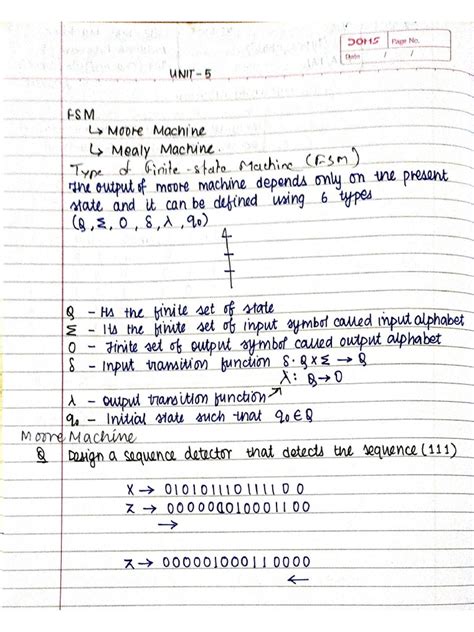 DOMS Page No.
Date / /
UNIT-5
FSM
↳ Moore Machine
↳ Mealy Machine.
Type of Finite-state Machine (FSM)
The output of moore machine depends only on the present
state and it can be defined using 6 types
(Q, Σ, O, δ, λ, q₀)
Q - Its the finite set of state
Σ - Its the finite set of input symbol called input alphabet
O - Finite set of output symbol called output alphabet
δ - Input transition function δ: Q×Σ → Q
λ: Q→O
λ - output transition function
q₀ - Initial state such that q₀ ∈ Q
Moore Machine
Q Design a sequence detector that detects the sequence (111)
X → 010101110111100
Z → 000001010001100
→
Z → 000001000110000
←